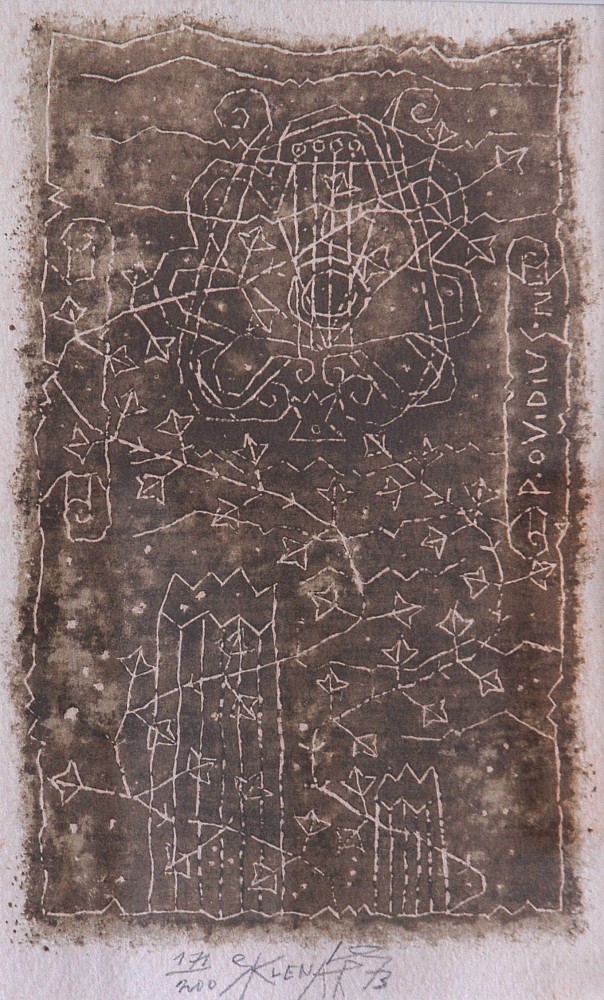 P. OVIDIUS·N
171
200
SKLENAR 73